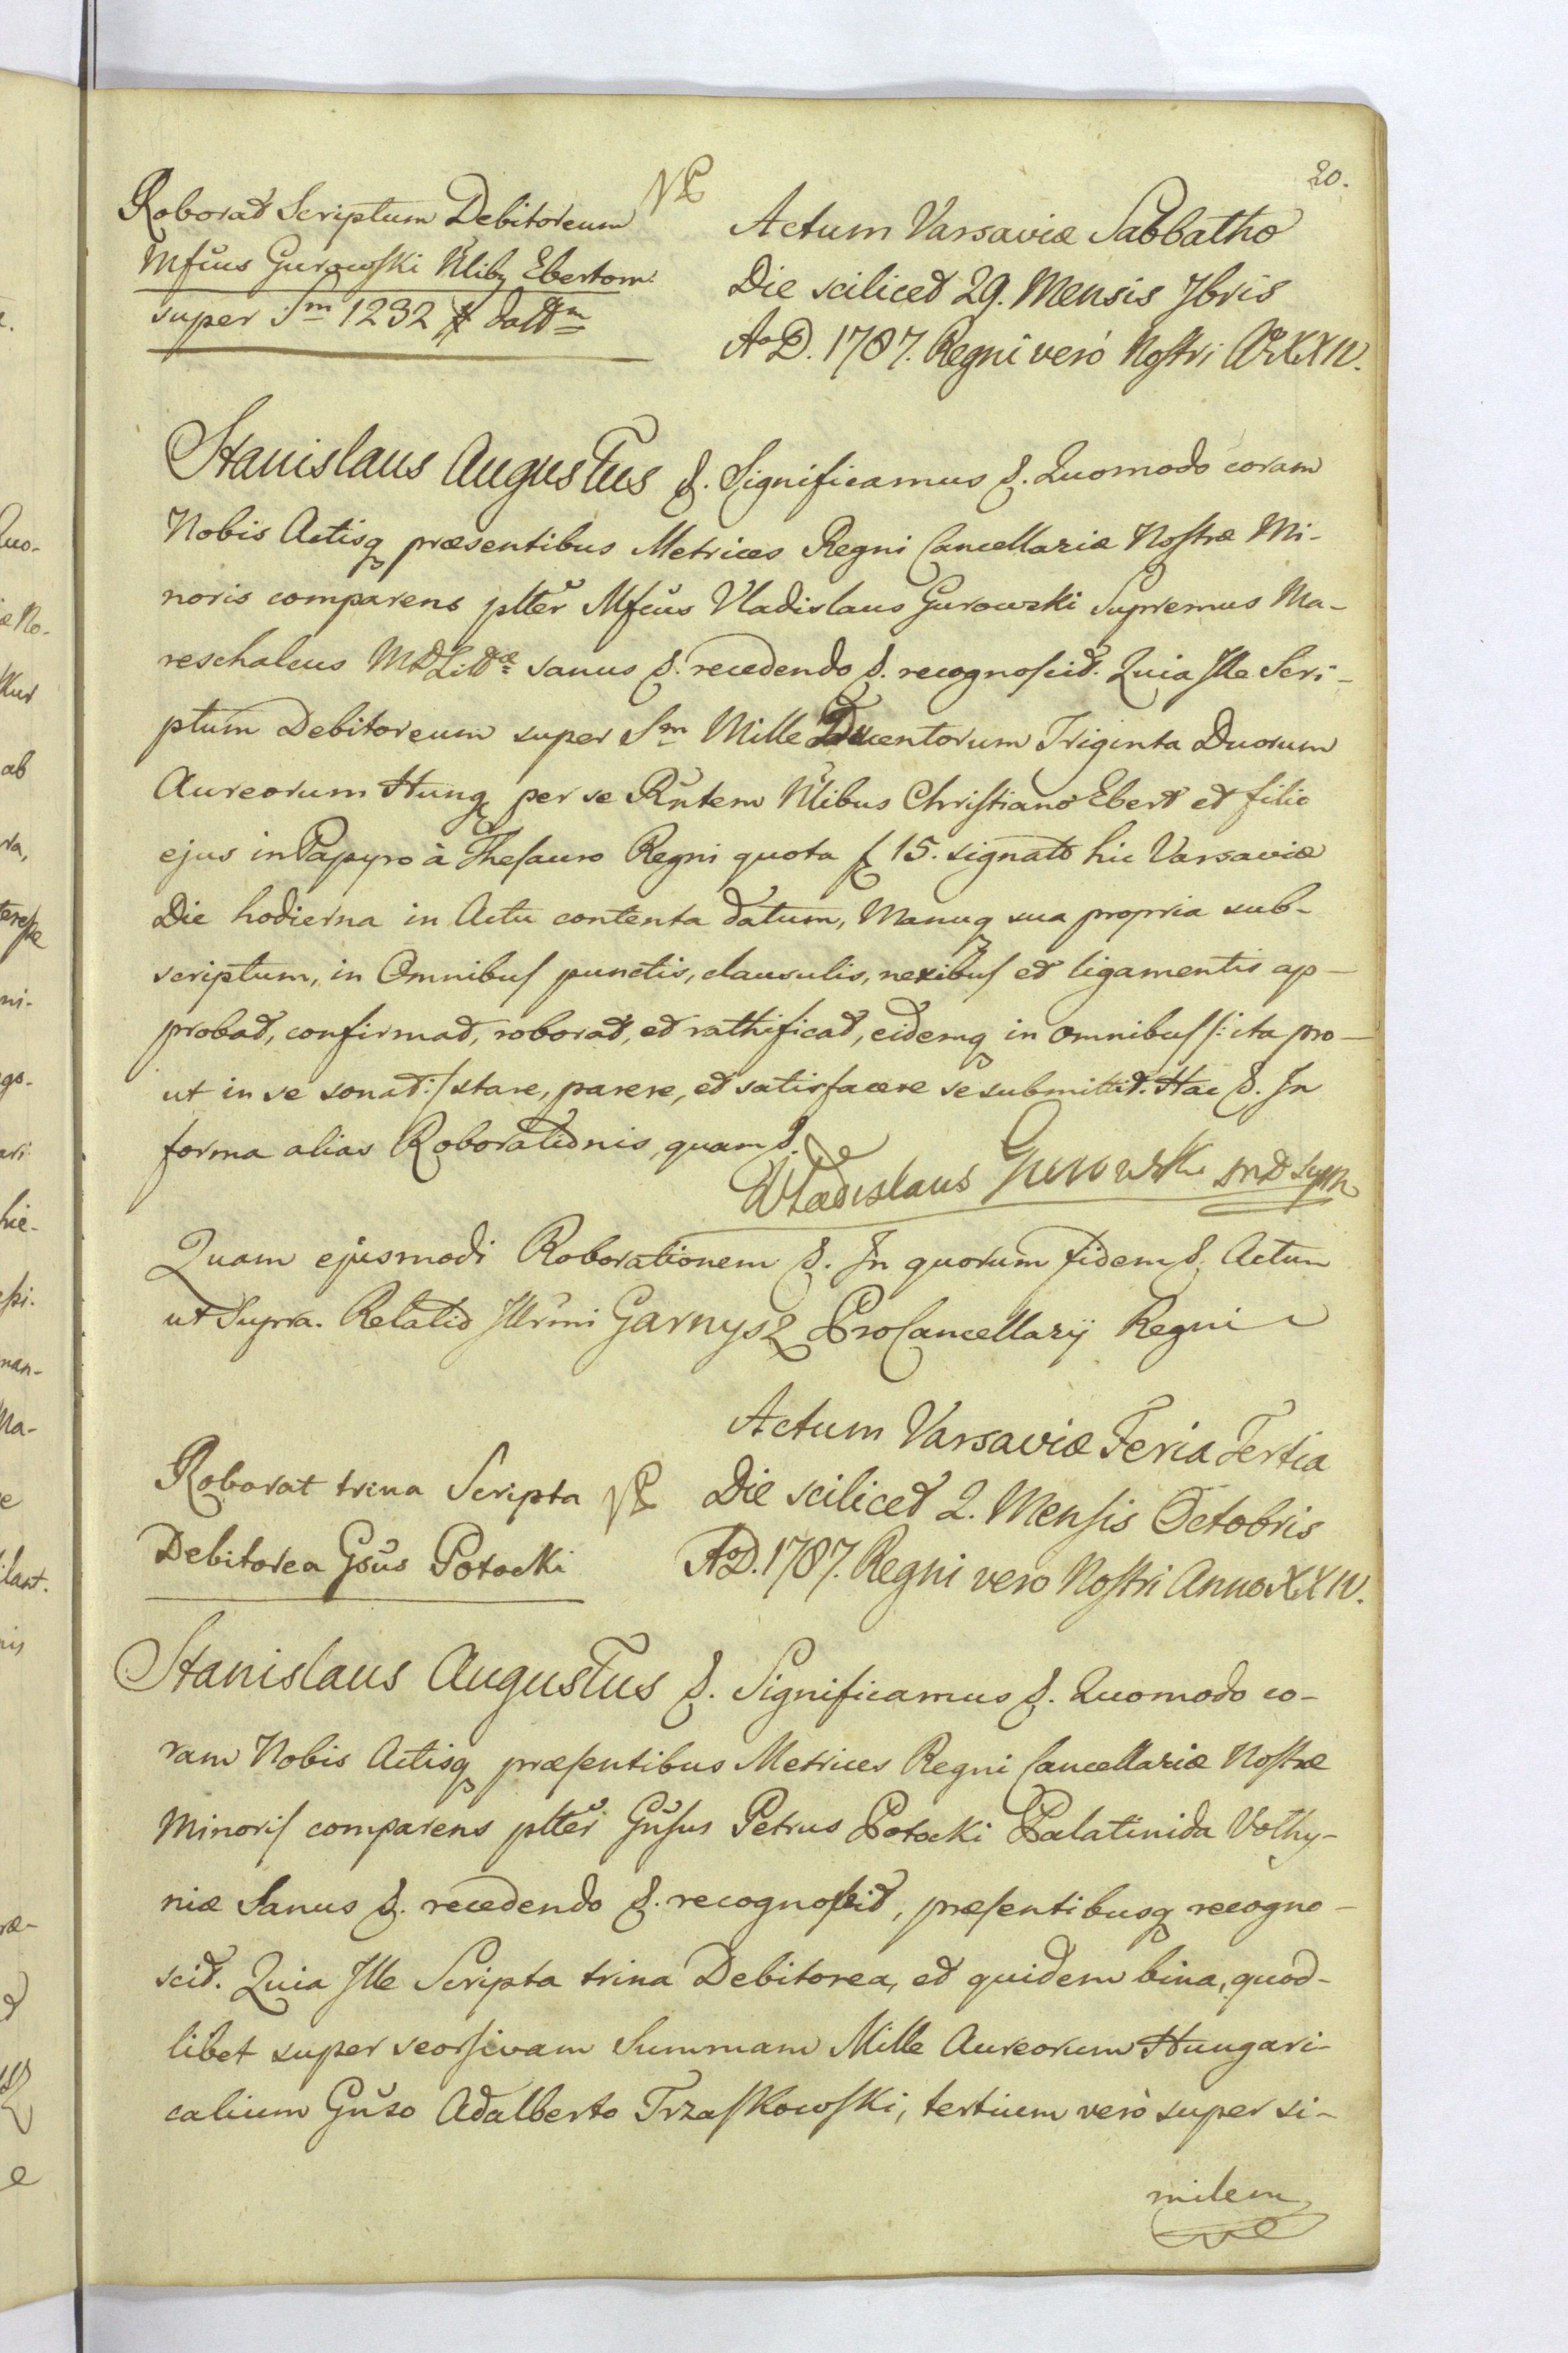 20.
Roborat Scriptum Debitoreum
Mfcus Gurowski Nlibq Ebertom
super Sm 1232 # datt m
Actum Varsaviæ Sabbatho
Die scilicet 29. Mensis 7bris
Ao D. 1787. Regni vero Nostri Ao XXIV.
Stanislaus Augustus &. Significamus &. Quomodo coram
Nobis Actisq præsentibus Metrices Regni Cancellariæ Nostræ Mi-
noris comparens plter Mfcus Vladislaus Gurowski Supremus Ma-
reschalcus MDLittæ sanus &. recedendo &. recognoscit. Quia Ille Scri-
ptum Debitoreum super Sm Mille Ducentorum Triginta Duorum
Aureorum Hung per se Rntem Nlibus Christiano Ebert et filio
ejus in Papyro à Thesauro Regni quota f 15. signato hic Varsaviæ
Die hodierna in Actu contenta datum, Manuq sua propria sub-
scriptum, in Omnibus punctis, clausulis, nexibus et ligamentis ap-
probat, confirmat, roborat, et rathificat, eidemq in omnibus /: ita pro-
ut in se sonat :/ stare, parere, et satisfacere se submittit. Hac &. In
forma alias Roborationis, quam &.
Wladislaus Gurowski
Quam ejusmodi Roborationem &. In quorum fidem &. Actum
ut Supra. Relatio Illrmi Garnysz ProCancellarij Regni
Roborat trina Scripta
Debitorea Gsus Potocki
Actum Varsaviæ Feria Tertia
Die scilicet 2. Mensis Octobris
AoD. 1787. Regni vero Nostri Anno XXIV.
Stanislaus Augustus &. Significamus &. Quomodo co-
ram Nobis Actisq præsentibus Metrices Regni Cancellariæ Nostræ
Minoris comparens plter Gnsus Petrus Potocki Palatinida Volhy-
niæ Sanus &. recedendo &. recognoscit, præsentibusq recogno-
scit. Quia Ille Scripta trina Debitorea, et quidem bina, quod-
libet super seorsivam Summam Mille Aureorum Hungari-
calium Gnso Adalberto Trzaskowski, tertium verò super si-
milem